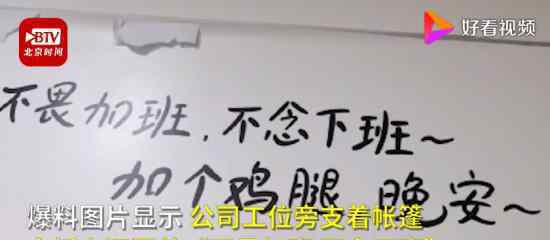 BTV
北京时间
好看视频
不畏加班，不念下班～
加个鸡腿 晚安～
爆料图片显示 公司工位旁支着帐篷